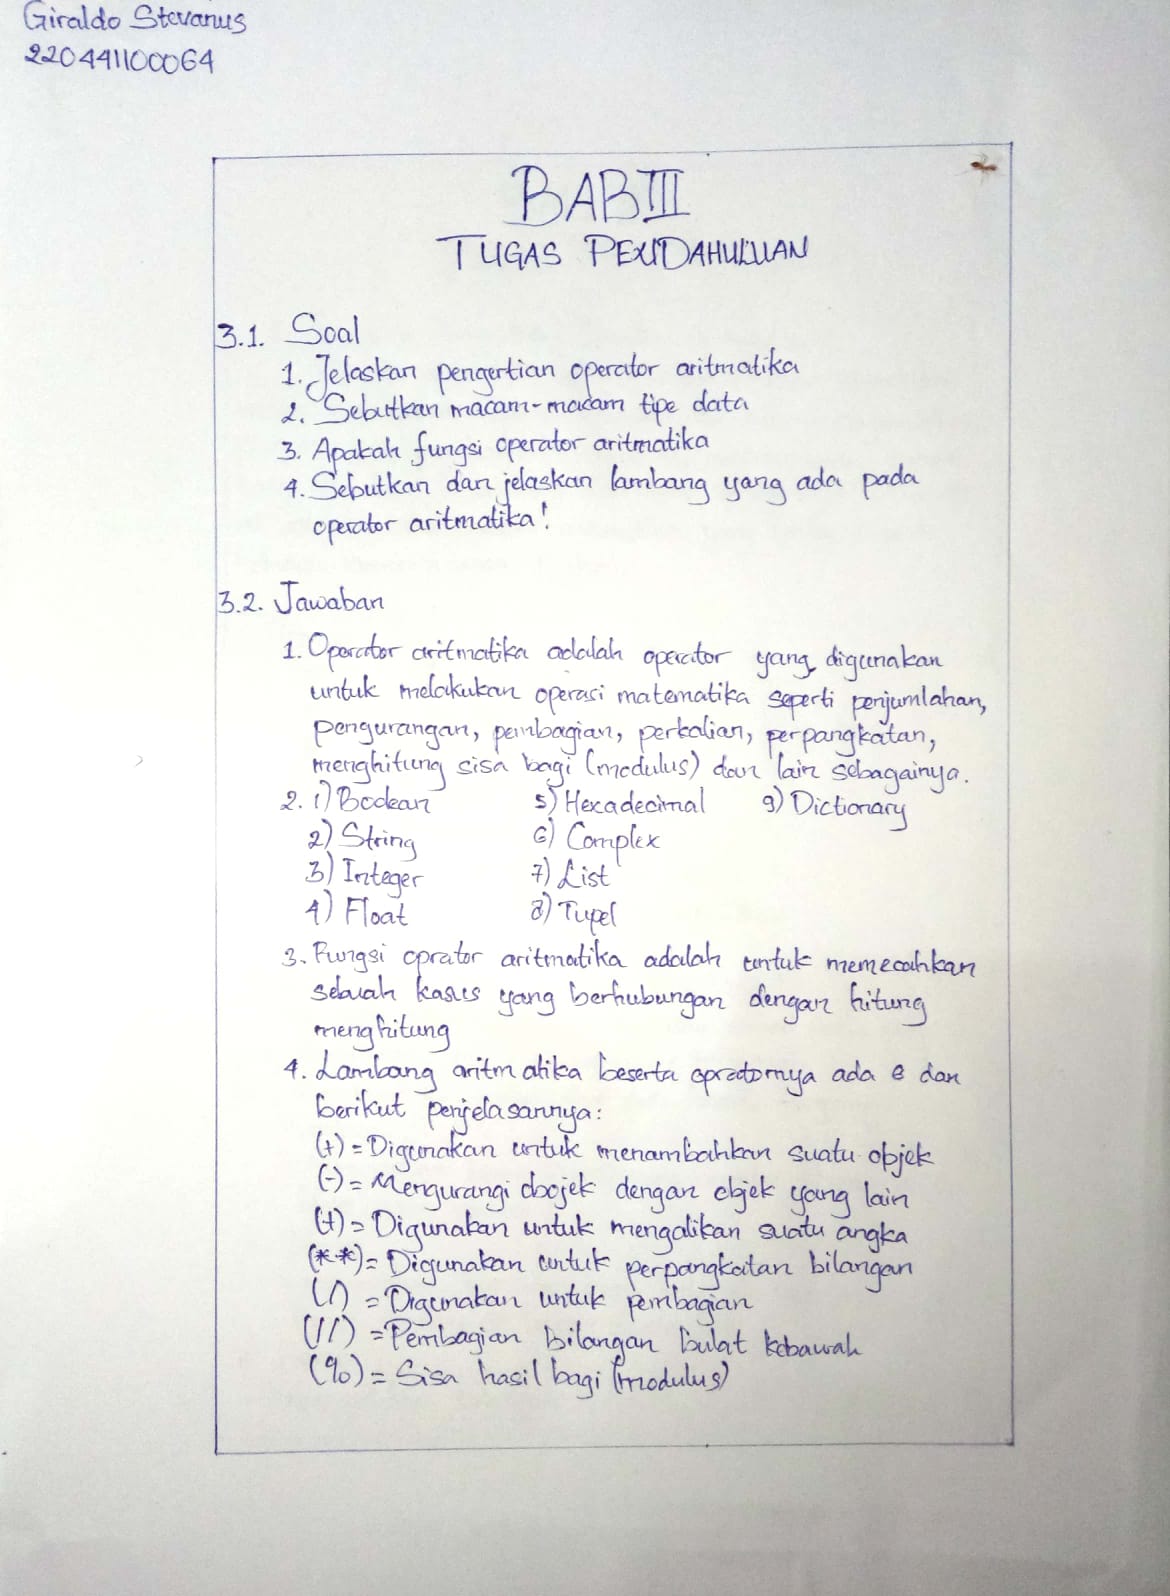 Giraldo Stevanus
220441100064
BAB III
TUGAS PENDAHULUAN
3.1. Soal
1. Jelaskan pengertian operator aritmatika
2. Sebutkan macam-macam tipe data
3. Apakah fungsi operator aritmatika
4. Sebutkan dan jelaskan lambang yang ada pada
operator aritmatika!
3.2. Jawaban
1. Operator aritmatika adalah operator yang digunakan
untuk melakukan operasi matematika seperti penjumlahan,
pengurangan, pembagian, perkalian, perpangkatan,
menghitung sisa bagi (modulus) dan lain sebagainya.
2. 1) Boolean 5) Hexadecimal 9) Dictionary
2) String 6) Complex
3) Integer 7) List
4) Float 8) Tupel
3. Fungsi oprator aritmatika adalah untuk memecahkan
sebuah kasus yang berhubungan dengan hitung
menghitung
4. Lambang aritmatika beserta opratornya ada 8 dan
berikut penjelasannya:
(+) = Digunakan untuk menambahkan suatu objek
(-) = Mengurangi obojek dengan objek yang lain
(+) = Digunakan untuk mengalikan suatu angka
(**) = Digunakan untuk perpangkatan bilangan
(/) = Digunakan untuk pembagian
(//) = Pembagian bilangan bulat kebawah
(%) = Sisa hasil bagi (modulus)